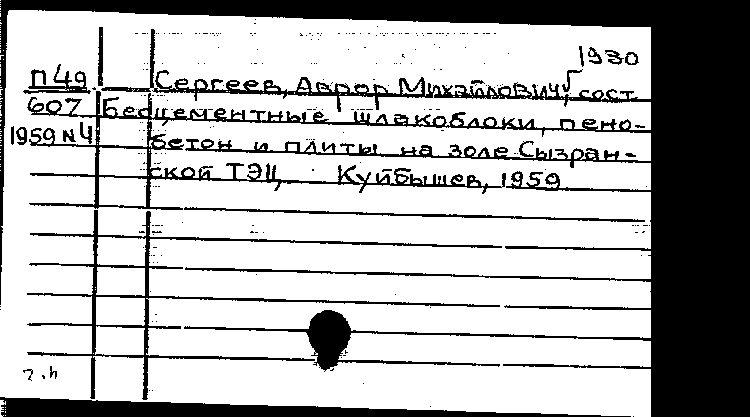 1930
П49 Сергеев, Аврор Михайлович, сост.
607 Бесцементные шлакоблоки, пено-
1959 N4 бетон и плиты на золе Сызран-
ской ТЭЦ, Куйбышев, 1959